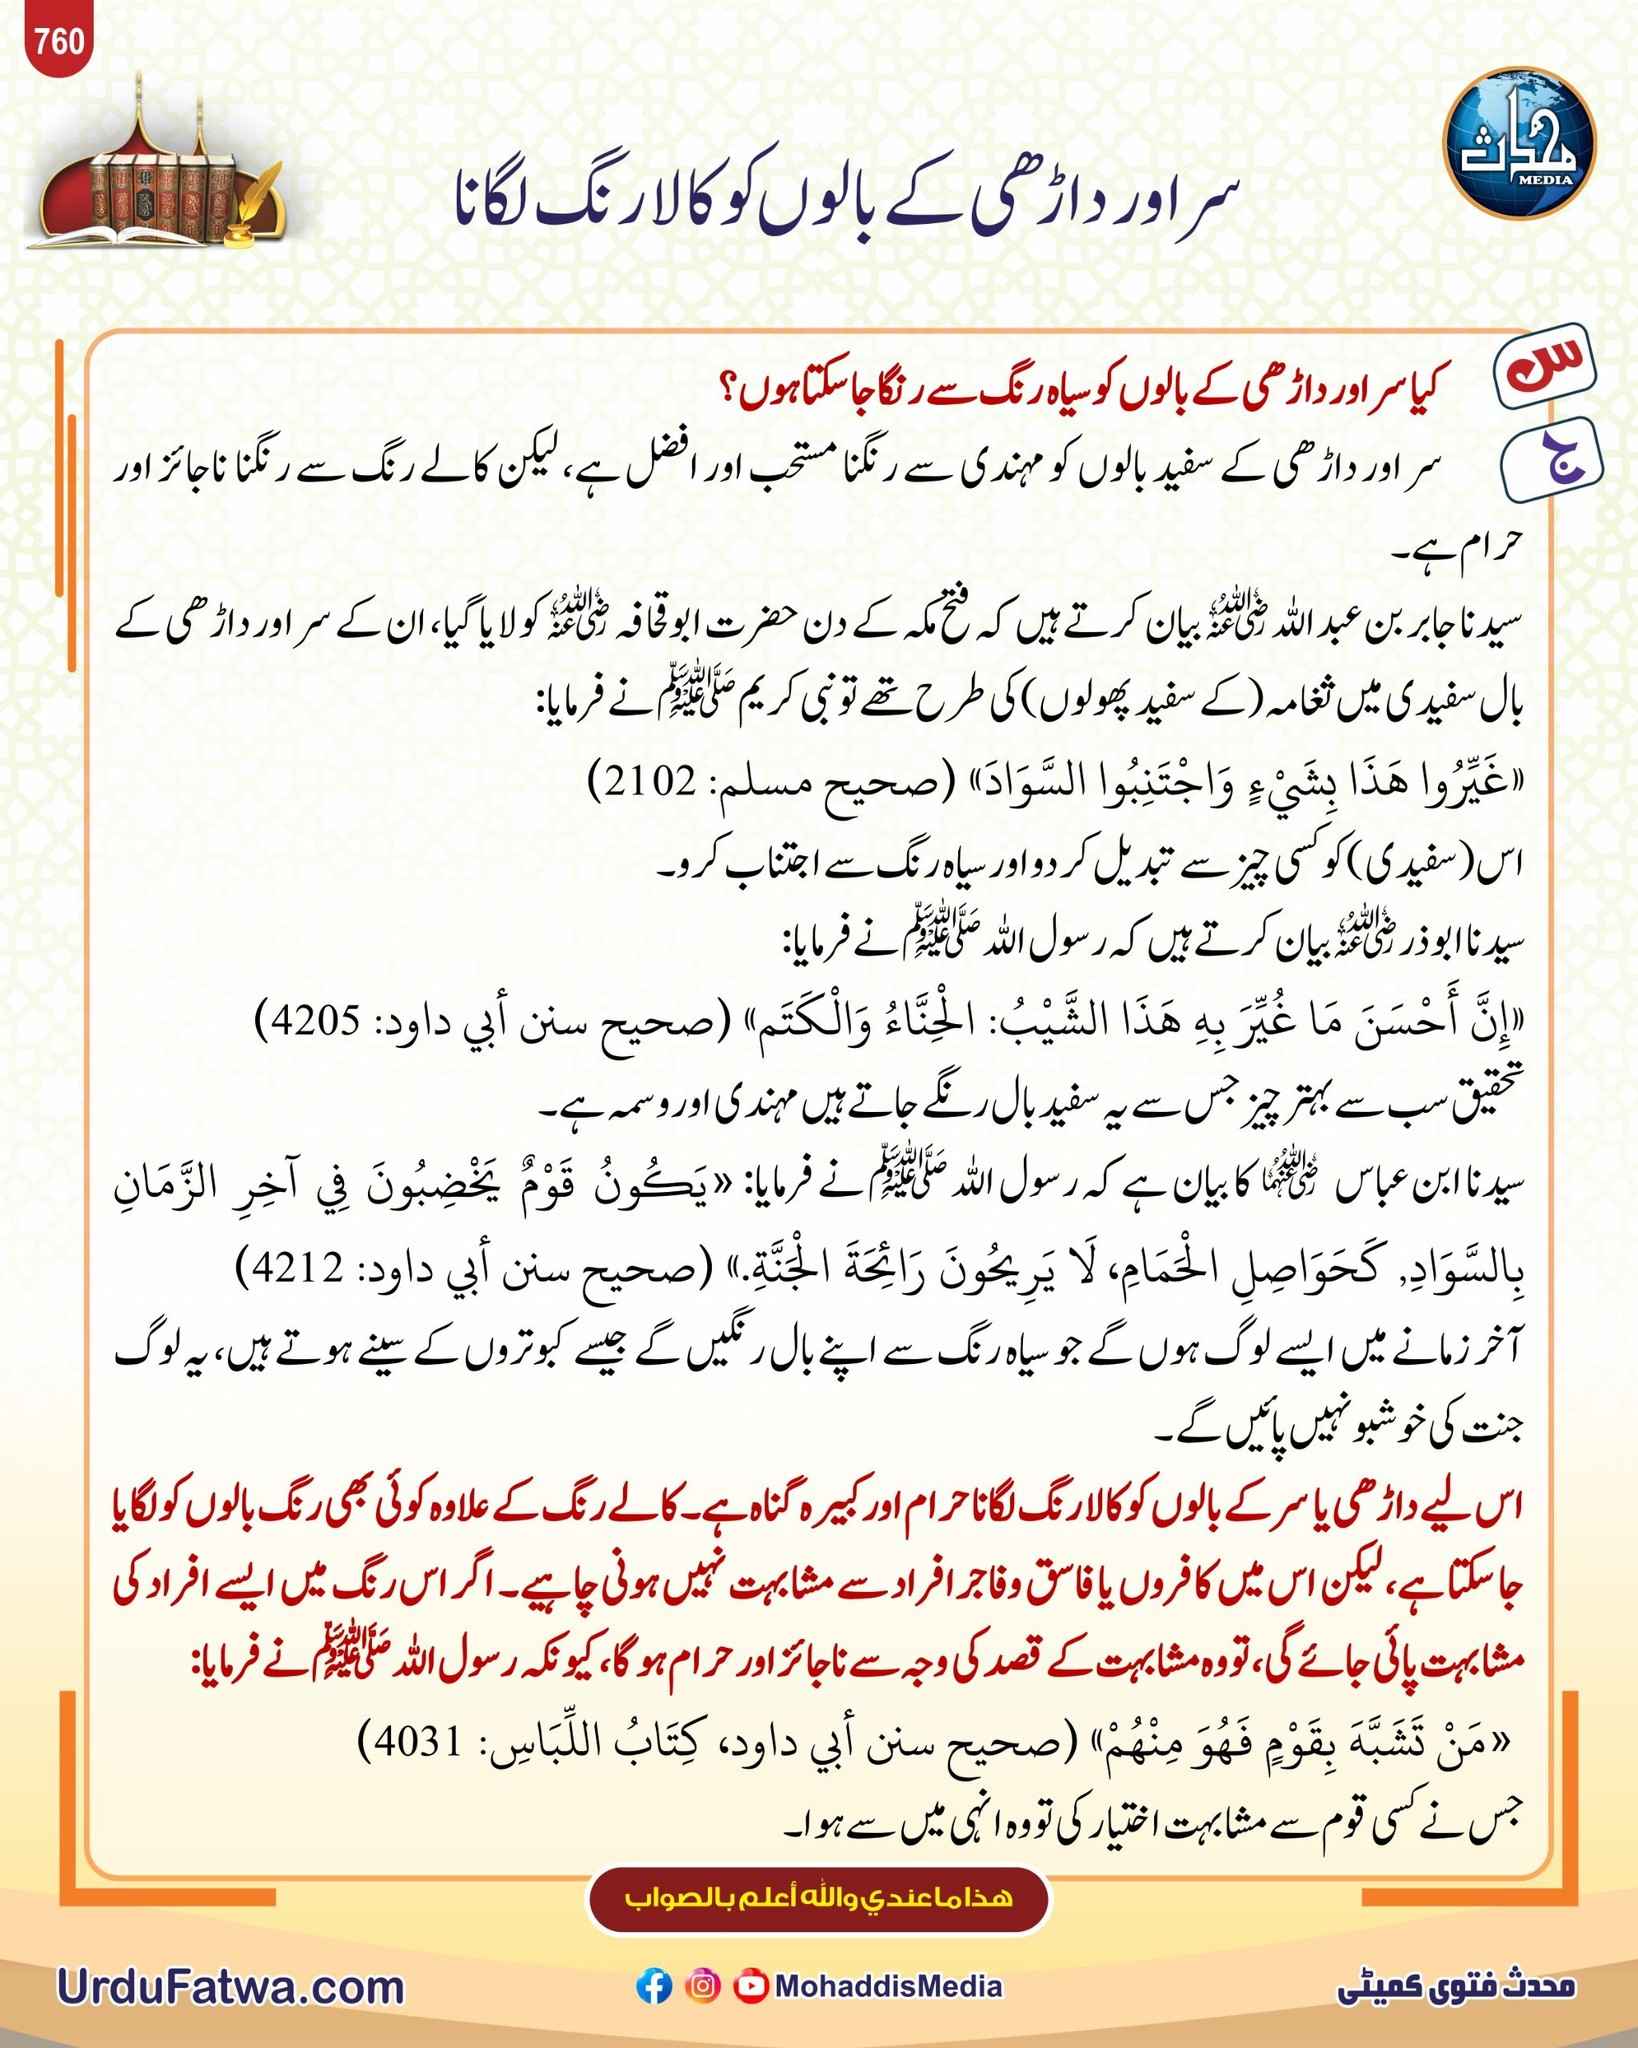 760
محدث
MEDIA
سر اور داڑھی کے بالوں کو کالا رنگ لگانا
س
کیا سر اور داڑھی کے بالوں کو سیاہ رنگ سے رنگا جا سکتا ہوں؟
ج
سر اور داڑھی کے سفید بالوں کو مہندی سے رنگنا مستحب اور افضل ہے، لیکن کالے رنگ سے رنگنا ناجائز اور
حرام ہے۔
سیدنا جابر بن عبد اللہ رضی اللہ عنہ بیان کرتے ہیں کہ فتح مکہ کے دن حضرت ابو قحافہ رضی اللہ عنہ کو لایا گیا، ان کے سر اور داڑھی کے
بال سفیدی میں ثغامہ (کے سفید پھولوں) کی طرح تھے تو نبی کریم ﷺ نے فرمایا:
«غَيِّرُوا هَذَا بِشَيْءٍ وَاجْتَنِبُوا السَّوَادَ» (صحيح مسلم: 2102)
اس (سفیدی) کو کسی چیز سے تبدیل کر دو اور سیاہ رنگ سے اجتناب کرو۔
سیدنا ابوذر رضی اللہ عنہ بیان کرتے ہیں کہ رسول اللہ ﷺ نے فرمایا:
«إِنَّ أَحْسَنَ مَا غُيِّرَ بِهِ هَذَا الشَّيْبُ: الْحِنَّاءُ وَالْكَتَم» (صحيح سنن أبي داود: 4205)
تحقیق سب سے بہتر چیز جس سے یہ سفید بال رنگے جاتے ہیں مہندی اور وسمہ ہے۔
سیدنا ابن عباس رضی اللہ عنہما کا بیان ہے کہ رسول اللہ ﷺ نے فرمایا: «يَكُونُ قَوْمٌ يَخْضِبُونَ فِي آخِرِ الزَّمَانِ
بِالسَّوَادِ, كَحَوَاصِلِ الْحَمَامِ، لَا يَرِيحُونَ رَائِحَةَ الْجَنَّةِ.» (صحيح سنن أبي داود: 4212)
آخر زمانے میں ایسے لوگ ہوں گے جو سیاہ رنگ سے اپنے بال رنگیں گے جیسے کبوتروں کے سینے ہوتے ہیں، یہ لوگ
جنت کی خوشبو نہیں پائیں گے۔
اس لیے داڑھی یا سر کے بالوں کو کالا رنگ لگانا حرام اور کبیرہ گناہ ہے۔ کالے رنگ کے علاوہ کوئی بھی رنگ بالوں کو لگایا
جا سکتا ہے، لیکن اس میں کافروں یا فاسق و فاجر افراد سے مشابہت نہیں ہونی چاہیے۔ اگر اس رنگ میں ایسے افراد کی
مشابہت پائی جائے گی، تو وہ مشابہت کے قصد کی وجہ سے ناجائز اور حرام ہو گا، کیونکہ رسول اللہ ﷺ نے فرمایا:
«مَنْ تَشَبَّهَ بِقَوْمٍ فَهُوَ مِنْهُمْ» (صحيح سنن أبي داود، كِتَابُ اللِّبَاسِ: 4031)
جس نے کسی قوم سے مشابہت اختیار کی تو وہ انہی میں سے ہوا۔
هذا ما عندي والله أعلم بالصواب
UrduFatwa.com
MohaddisMedia
محدث فتوی کمیٹی